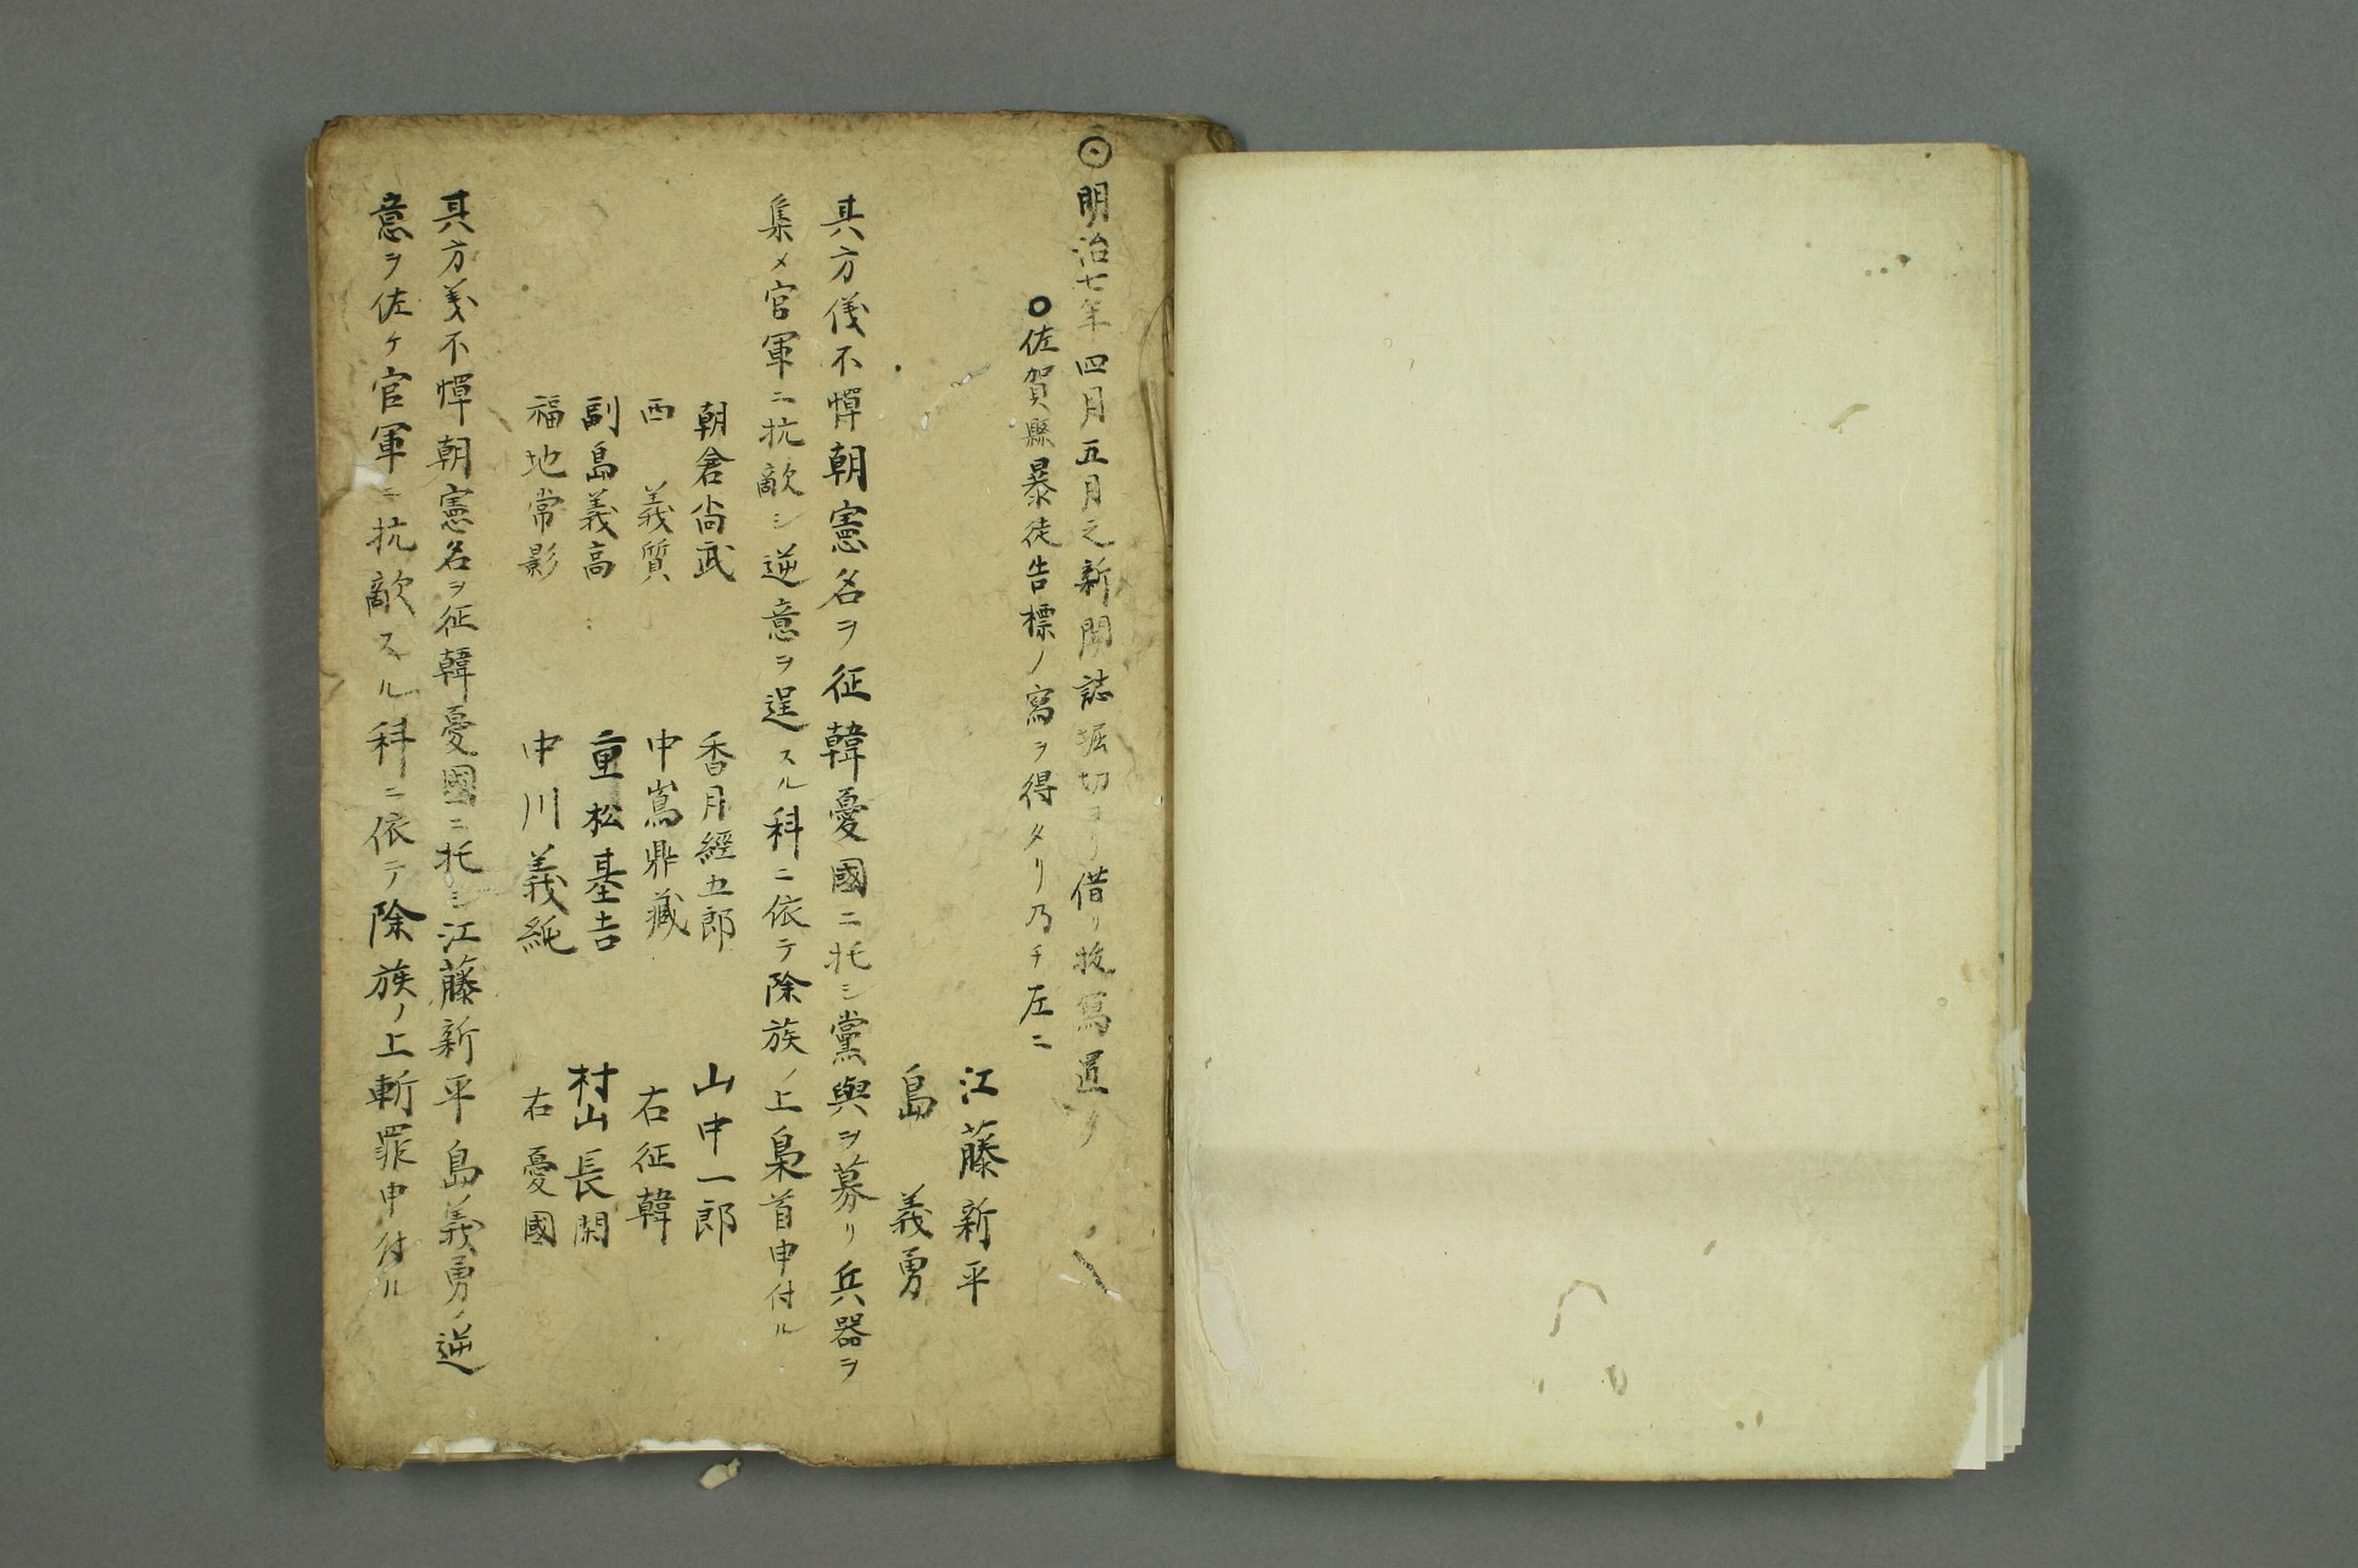 ◎明治七年四月五月之新聞誌堀切ヨリ借リ抜寫置ク
○佐賀縣暴徒告標ノ寫ヲ得タリ乃チ左ニ
江藤新平
島義勇
其方儀不憚朝憲名ヲ征韓憂國ニ托シ黨與ヲ募リ兵器ヲ
集メ官軍ニ抗敵シ逆意ヲ逞スル科ニ依テ除族ノ上梟首申付ル
朝倉尚武 香月經五郎 山中一郎
西義質 中嶌鼎藏 右征韓
副島義高 重松基吉 村山長閑
福地常影 中川義純 右憂國
其方義不憚朝憲名ヲ征韓憂國ニ托シ江藤新平島義勇ノ逆
意ヲ佐ケ官軍ニ抗敵スル科ニ依テ除族ノ上斬罪申付ル